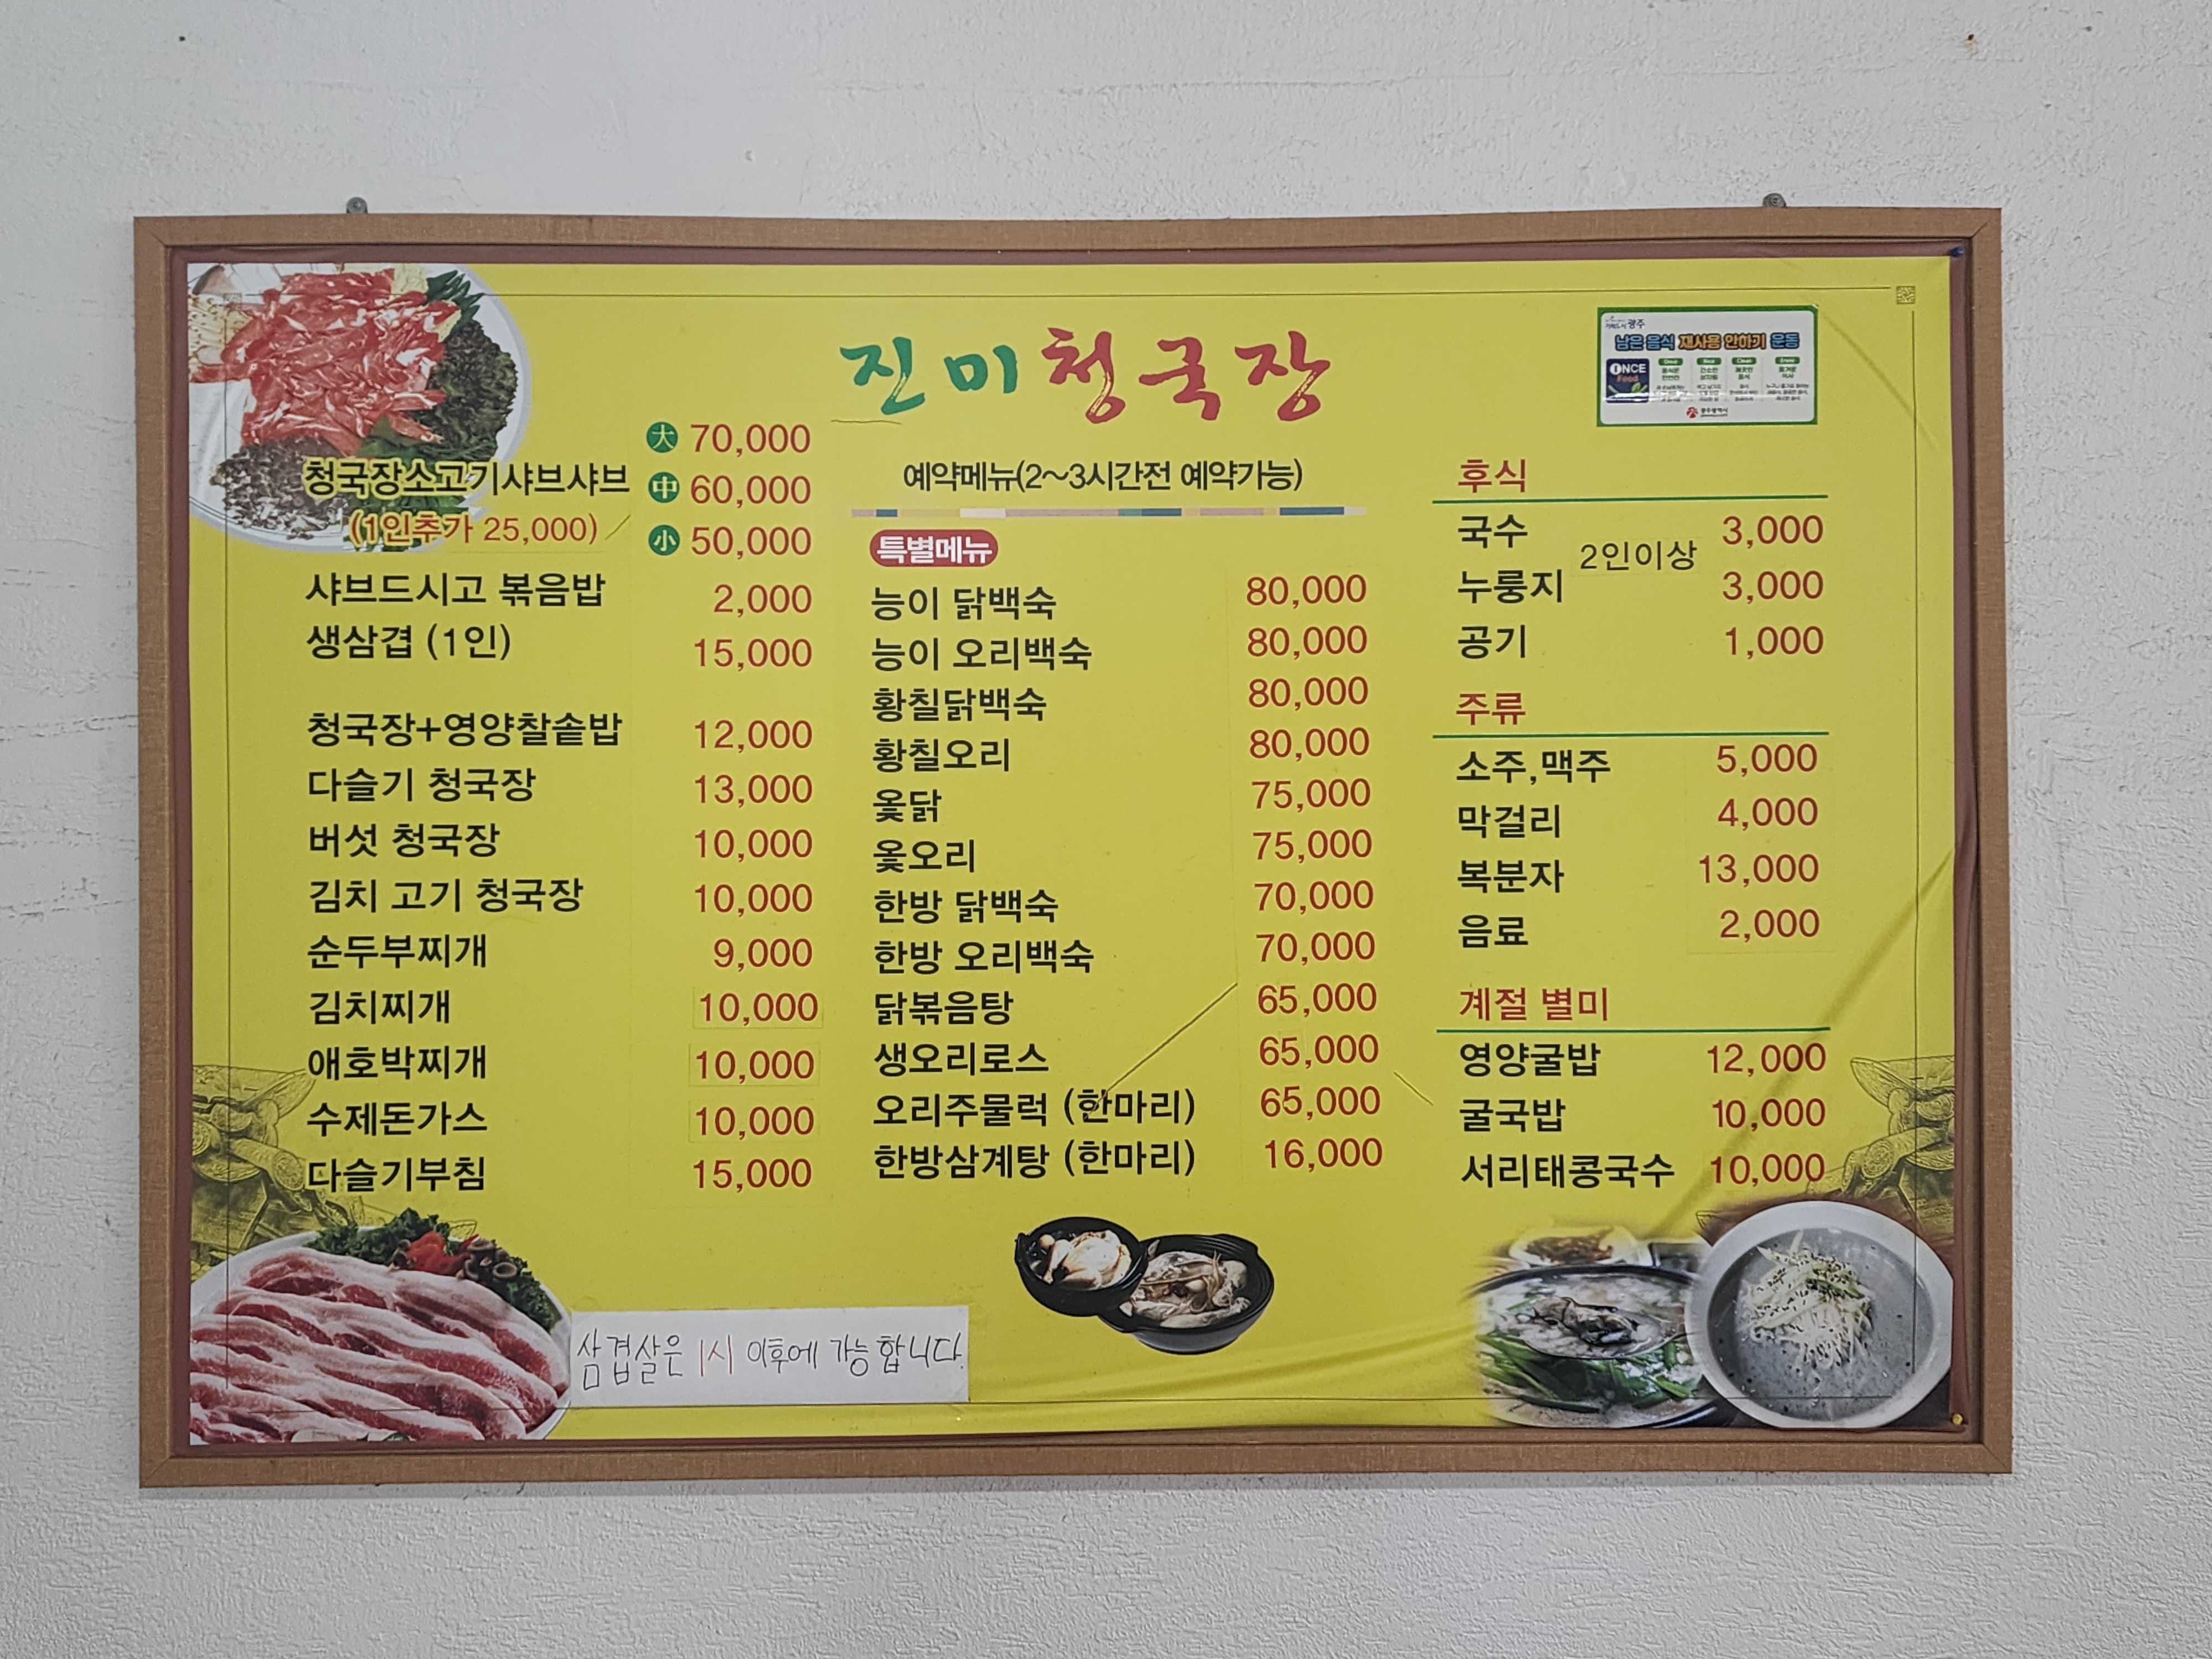 진미청국장
청국장소고기샤브샤브
(1인추가 25,000)
大 70,000
中 60,000
小 50,000
샤브드시고 볶음밥 2,000
생삼겹 (1인) 15,000
청국장+영양찰솥밥 12,000
다슬기 청국장 13,000
버섯 청국장 10,000
김치 고기 청국장 10,000
순두부찌개 9,000
김치찌개 10,000
애호박찌개 10,000
수제돈가스 10,000
다슬기부침 15,000
삼겹살은 1시 이후에 가능합니다.
예약메뉴(2~3시간전 예약가능)
특별메뉴
능이 닭백숙 80,000
능이 오리백숙 80,000
황칠닭백숙 80,000
황칠오리 80,000
옻닭 75,000
옻오리 75,000
한방 닭백숙 70,000
한방 오리백숙 70,000
닭볶음탕 65,000
생오리로스 65,000
오리주물럭 (한마리) 65,000
한방삼계탕 (한마리) 16,000
광주
남은 음식 재사용 안하기 운동
ONCE
Food
광주광역시
후식
국수 3,000
2인이상
누룽지 3,000
공기 1,000
주류
소주,맥주 5,000
막걸리 4,000
복분자 13,000
음료 2,000
계절 별미
영양굴밥 12,000
굴국밥 10,000
서리태콩국수 10,000